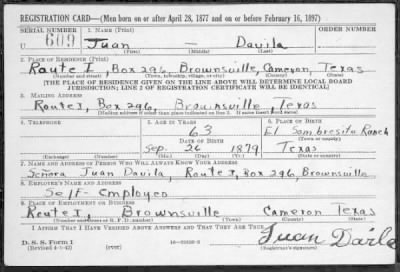 REGISTRATION CARD—(Men born on or after April 28, 1877 and on or before February 16, 1897)
SERIAL NUMBER 1. NAME (Print) ORDER NUMBER
U 609 Juan — Davila
(First) (Middle) (Last)
2. PLACE OF RESIDENCE (Print)
Route I, Box 296, Brownsville, Cameron, Texas
(Number and street) (Town, township, village, or city) (County) (State)
[THE PLACE OF RESIDENCE GIVEN ON THE LINE ABOVE WILL DETERMINE LOCAL BOARD
JURISDICTION; LINE 2 OF REGISTRATION CERTIFICATE WILL BE IDENTICAL]
3. MAILING ADDRESS
Route I, Box 296, Brownsville, Texas
(Mailing address if other than place indicated on line 2. If same insert word same)
4. TELEPHONE 5. AGE IN YEARS 6. PLACE OF BIRTH
63 El Sombresito Ranch
DATE OF BIRTH (Town or county)
Sep. 26 1879 Texas
(Exchange) (Number) (Mo.) (Day) (Yr.) (State or country)
7. NAME AND ADDRESS OF PERSON WHO WILL ALWAYS KNOW YOUR ADDRESS
Señora Juan Davila, Route I, Box 296, Brownsville
8. EMPLOYER'S NAME AND ADDRESS
Self-Employed
9. PLACE OF EMPLOYMENT OR BUSINESS
Route I, Brownsville Cameron Texas
(Number and street or R. F. D. number) (Town) (County) (State)
I AFFIRM THAT I HAVE VERIFIED ABOVE ANSWERS AND THAT THEY ARE TRUE.
D. S. S. Form 1
(Revised 4-1-42) (over) Juan
(Registrant's signature)